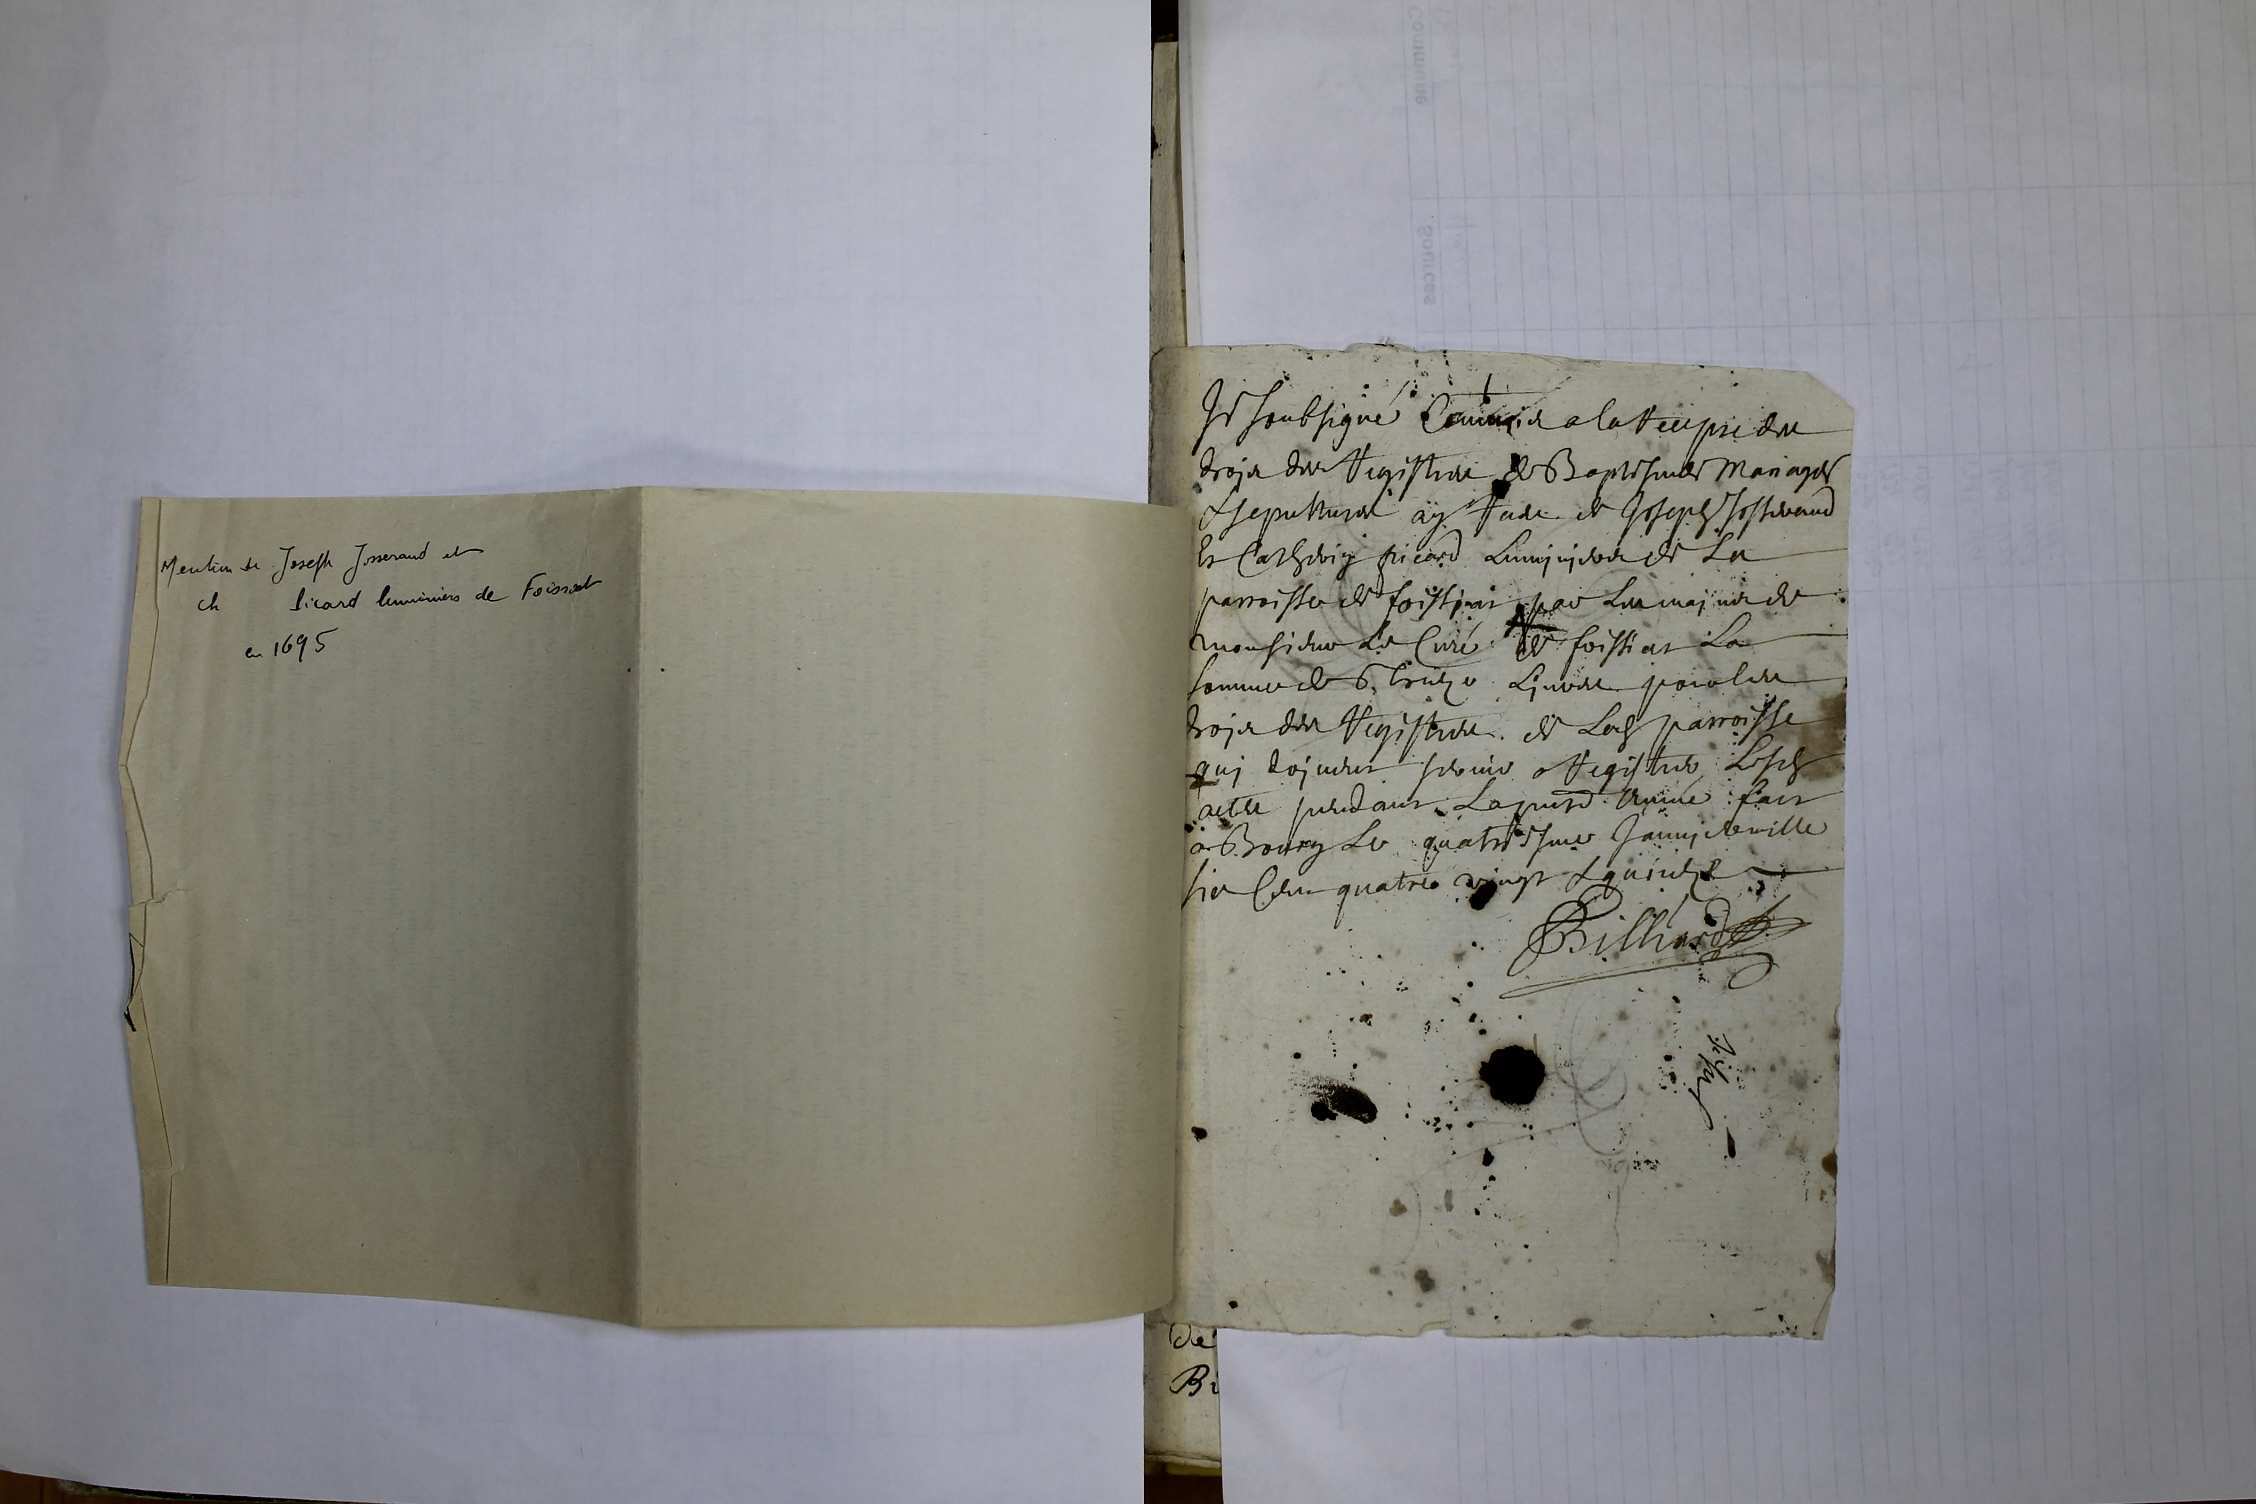 Mention de Joseph Josserand et
ch Picard luminiers de Foissiat
en 1695
Je soubsigné Commis a la Recepte des
drois des Registres de Baptesmes Mariages
& sepultures ay Receu de Joseph Josserand
Et Catherin picard Luminiers de La
parroisse de foissiat par Les mains de
monsieur Le Curé de foissiat La
somme de treize Livres pour les
drois des Registres de Lad parroisse
quj doivent servir a Registrer Lesd
actes pendant La pnte Année fait
a Bourg Le quatriesme Janvier mille
six Cens quatre vingt & quinze
Billiard
Commune
Sources
de
Bi